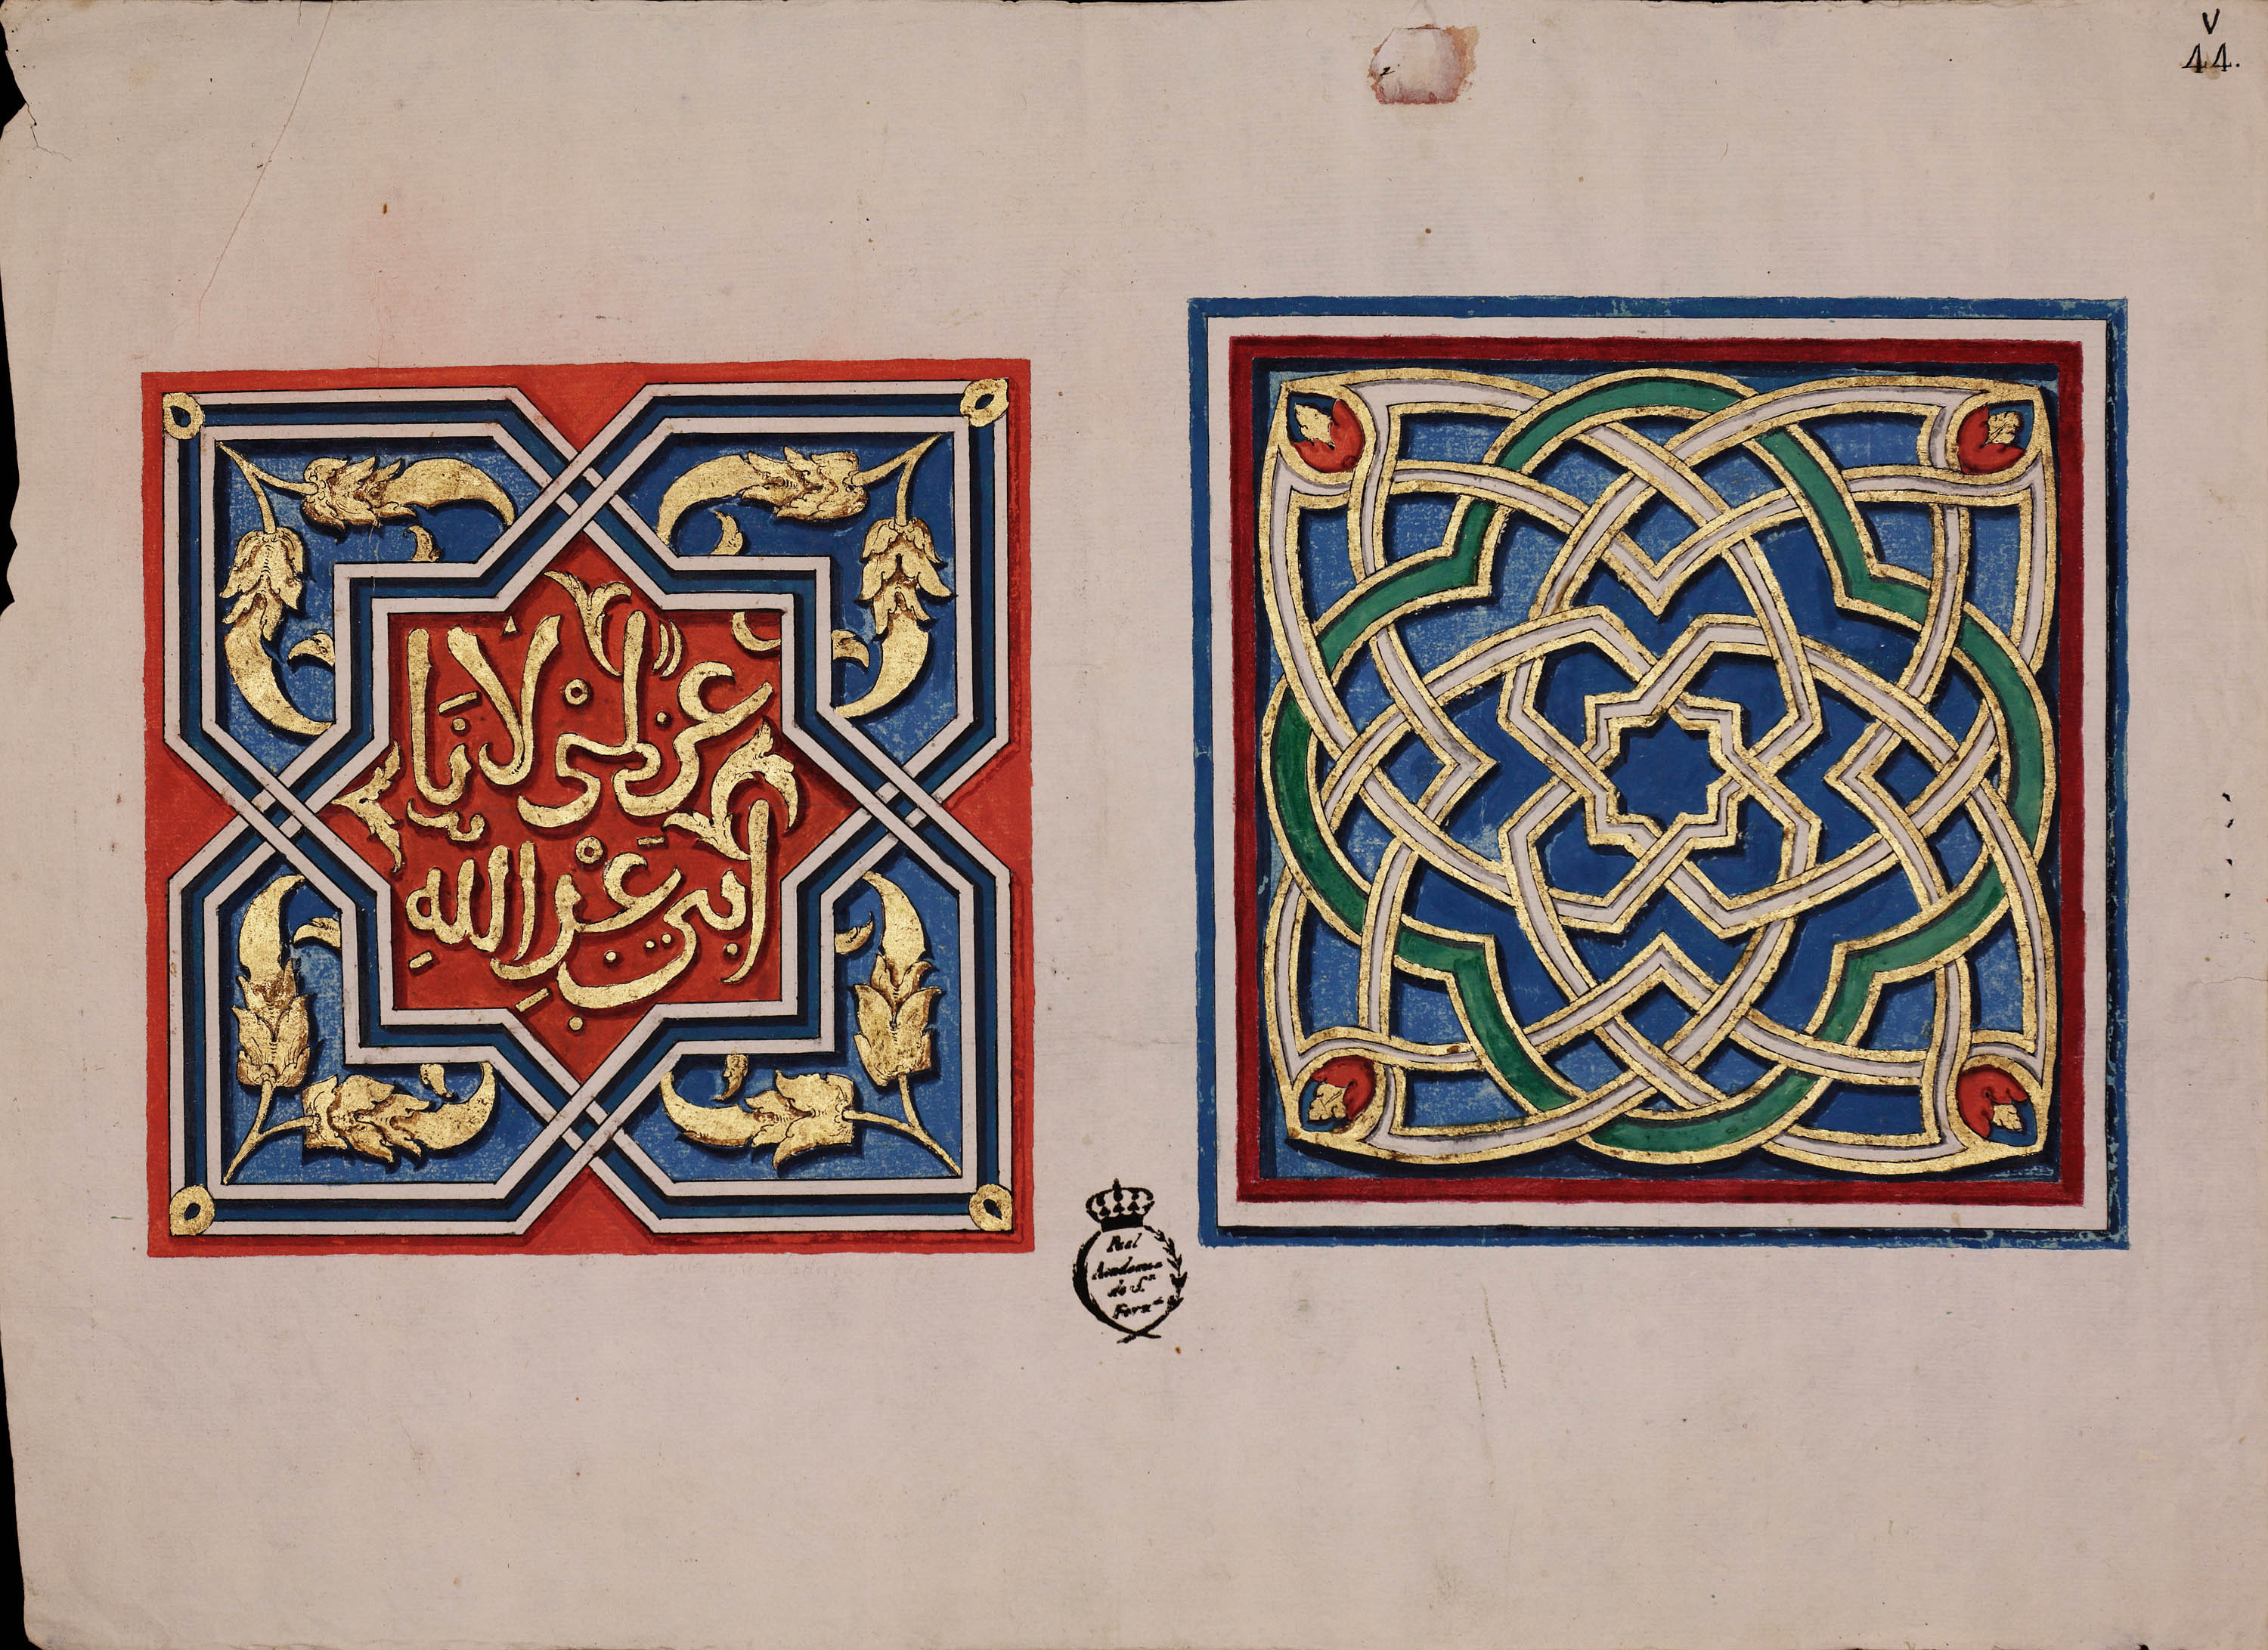 V
44.
عز لمولانا
ابي عبد الله
Real
Academia
de S.n
Fern.do